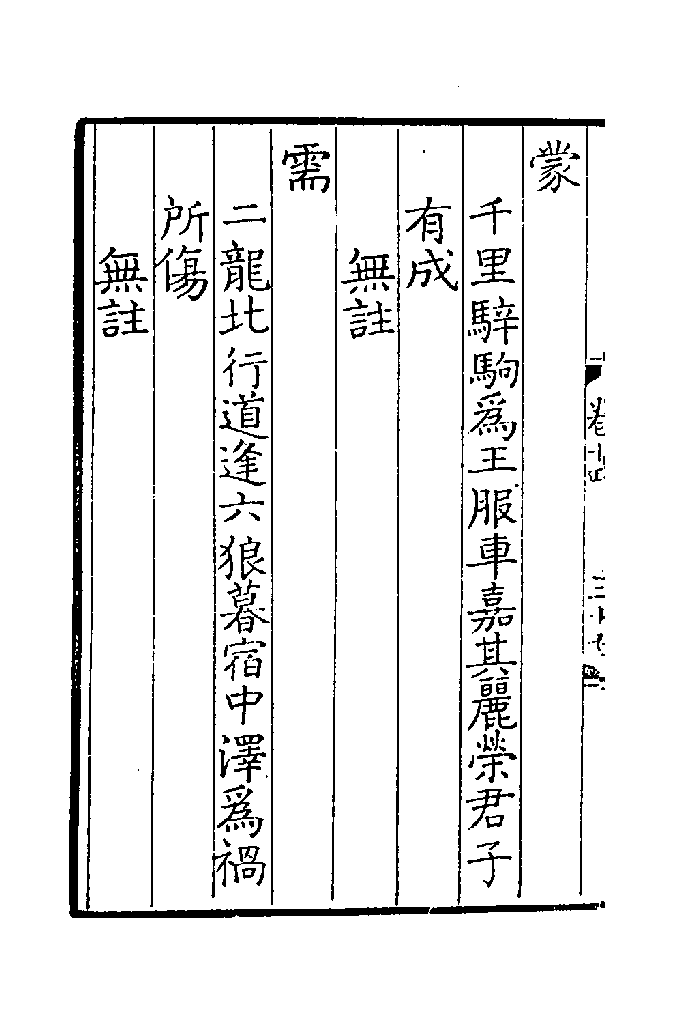 蒙
千里騂駒為王服車嘉其麗榮君子
有成
無註
需
二龍北行道逢六狼暮宿中澤為禍
所傷
無註